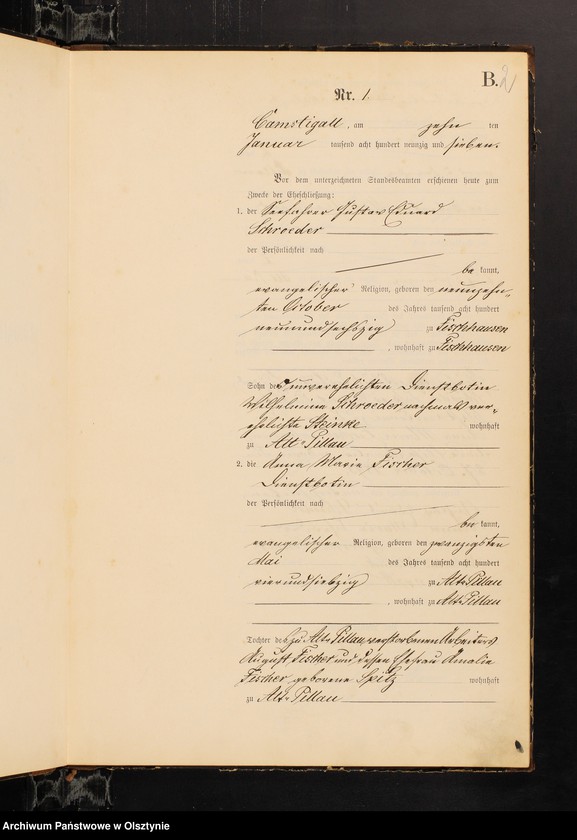 B. 2
Nr. 1.
Camstigall, am zehn ten
Januar tausend acht hundert neunzig und sieben.
Vor dem unterzeichneten Standesbeamten erschienen heute zum
Zwecke der Eheschließung:
1. der Seefahrer Gustav Eduard
Schroeder
der Persönlichkeit nach
be kannt,
evangelischer Religion, geboren den neunzehn-
ten October des Jahres tausend acht hundert
neunundsechszig zu Fischhausen
, wohnhaft zu Fischhausen
Sohn der unverehelichten Dienstbotin
Wilhelmine Schroeder nachmals ver-
ehelichte Steinke wohnhaft
zu Alt Pillau
2. die Anna Maria Fischer
Dienstbotin
der Persönlichkeit nach
be kannt,
evangelischer Religion, geboren den zwanzigsten
Mai des Jahres tausend acht hundert
vierundsiebzig zu Alt Pillau
, wohnhaft zu Alt Pillau
Tochter des zu Alt Pillau verstorbenen Arbeiters
August Fischer und dessen Ehefrau Amalie
Fischer geborene Spitz wohnhaft
zu Alt Pillau
Archiwum Państwowe w Olsztynie